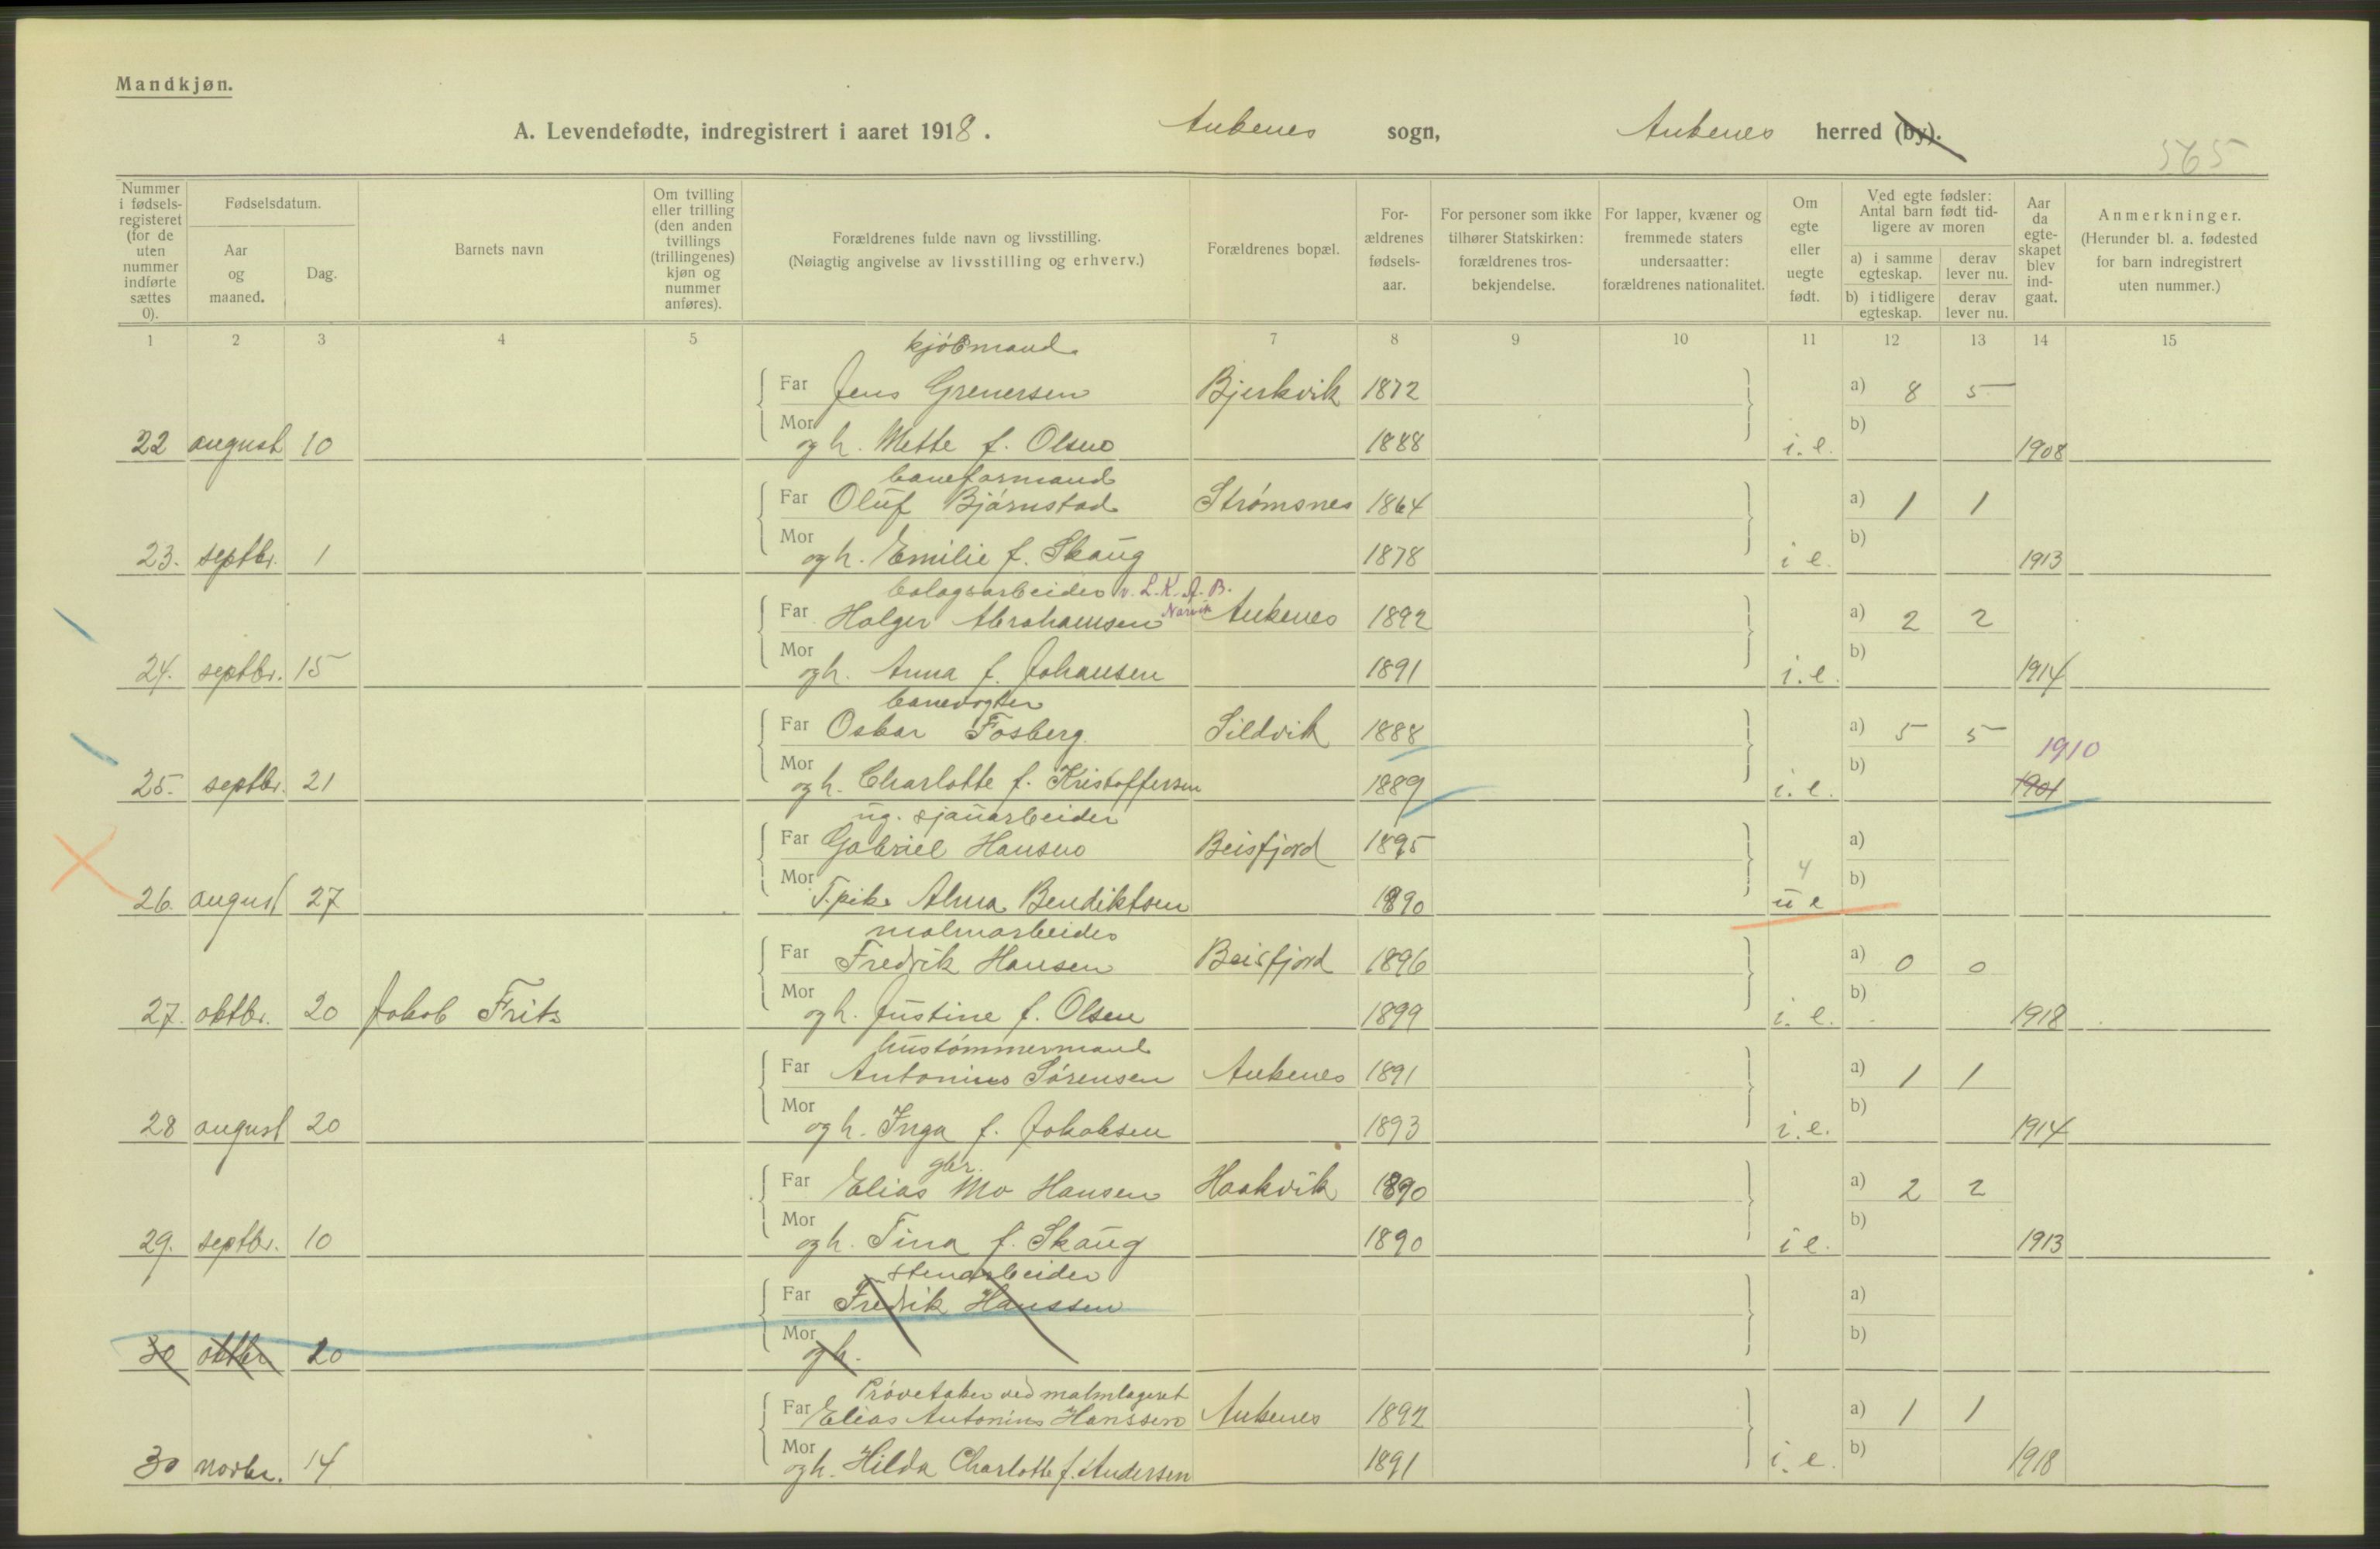 Mandkjøn.
A. Levendefødte, indregistrert i aaret 1918. Ankenes sogn, Ankenes herred (by).
565
Nummer i fødsels-registeret (for de uten nummer indførte sættes 0).
Fødselsdatum.
Aar og maaned.
Dag.
Barnets navn
Om tvilling eller trilling (den anden tvillings (trillingenes) kjøn og nummer anføres).
Forældrenes fulde navn og livsstilling.
(Nøiagtig angivelse av livsstilling og erhverv.)
Forældrenes bopæl.
For-ældrenes fødsels-aar.
For personer som ikke tilhører Statskirken: forældrenes tros-bekjendelse.
For lapper, kvæner og fremmede staters undersaatter: forældrenes nationalitet.
Om egte eller uegte født.
Ved egte fødsler: Antal barn født tid-ligere av moren
a) i samme egteskap.
derav lever nu.
b) i tidligere egteskap.
derav lever nu.
Aar da egte-skapet blev ind-gaat.
Anmerkninger.
(Herunder bl. a. fødested for barn indregistrert uten nummer.)
1 2 3 4 5 7 8 9 10 11 12 13 14 15
kjøbmand
Far Jens Grenersen Bjerkvik 1872 a) 8 5
Mor b)
22 august 10 og h. Mette f. Olsen 1888 i. e. 1908
baneformand
Far Oluf Bjørnstad Strømsnes 1864 a) 1 1
Mor b)
23. septbr. 1 og h. Emilie f. Skaug 1878 i e. 1913
bolagsarbeider v. L.K.A.B. Narvik
Far Holger Abrahamsen Ankenes 1892 a) 2 2
Mor b)
24. septbr. 15 og h. Anna f. Johansen 1891 i. e. 1914
banevogter
Far Oskar Fosberg Sildvik 1888 a) 5 5
1910
Mor b)
25. septbr. 21 og h. Charlotte f. Kristoffersen 1889 i. e. 1901
ug. sjauarbeider
Far Gabriel Hansen Beisfjord 1895 a)
4
Mor b)
26. august 27 T. pike Alma Bendiktsen 1890 u e
malmarbeider
Far Fredrik Hansen Beisfjord 1896 a) 0 0
Mor b)
27. oktbr. 20 Jakob Frits og h. Justine f. Olsen 1899 i. e. 1918
hustømmermand
Far Antonius Sørensen Ankenes 1891 a) 1 1
Mor b)
28 august 20 og h. Inga f. Jakobsen 1893 i. e. 1914
gbr.
Far Elias Mo Hansen Haakvik 1890 a) 2 2
Mor b)
29. septbr. 10 og h. Tina f. Skaug 1890 i e. 1913
stenarbeider
Far Fredrik Hanssen a)
Mor b)
30 oktbr 20 og h.
Prøvetaker ved malmlageret
Far Elias Antonius Hanssen Ankenes 1892 a) 1 1
Mor b)
30 novbr. 14 og h. Hilda Charlotte f. Andersen 1891 i. e. 1918